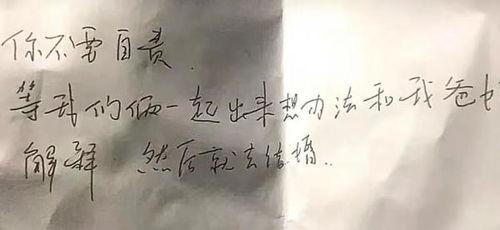 你不要自责.
等我们俩一起出来想办法和我爸
解释. 然后就去结婚..